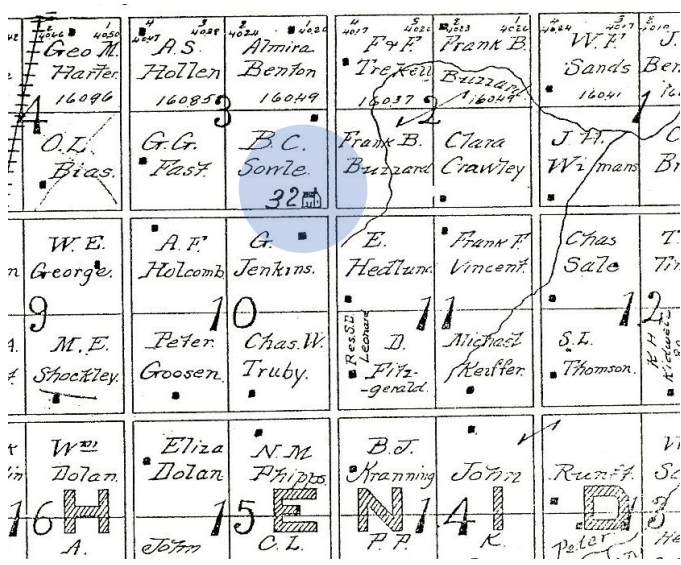 Geo M. Harter. 16096
A.S. Hollen 16085
Almira Benton 16049
F & F Trekell 16037
Frank B. Buzzard 16049
W.F. Sands 16041
J.
4
3
2
1
O.L. Bias.
G.G. Fast.
B.C. Sowle. 32
Frank B. Buzzard
Clara Crawley
J.H. Wilmans
W.E. George.
A.F. Holcomb
G. Jenkins.
E. Hedlund
Frank F. Vincent.
Chas Sale
T.
9
10
11
12
M.E. Shockley.
Peter Goosen.
Chas. W. Truby.
Res. S.D. Leonard
D. Fitz-gerald.
Michael Keiffer.
S.L. Thomson.
K H Kidwell
Wm Dolan
Eliza Dolan
N.M Phipps
B.J. Kranning
John
Runft.
16
15
14
H E N I D
A.
John
C.L.
P.P.
K.
Peter